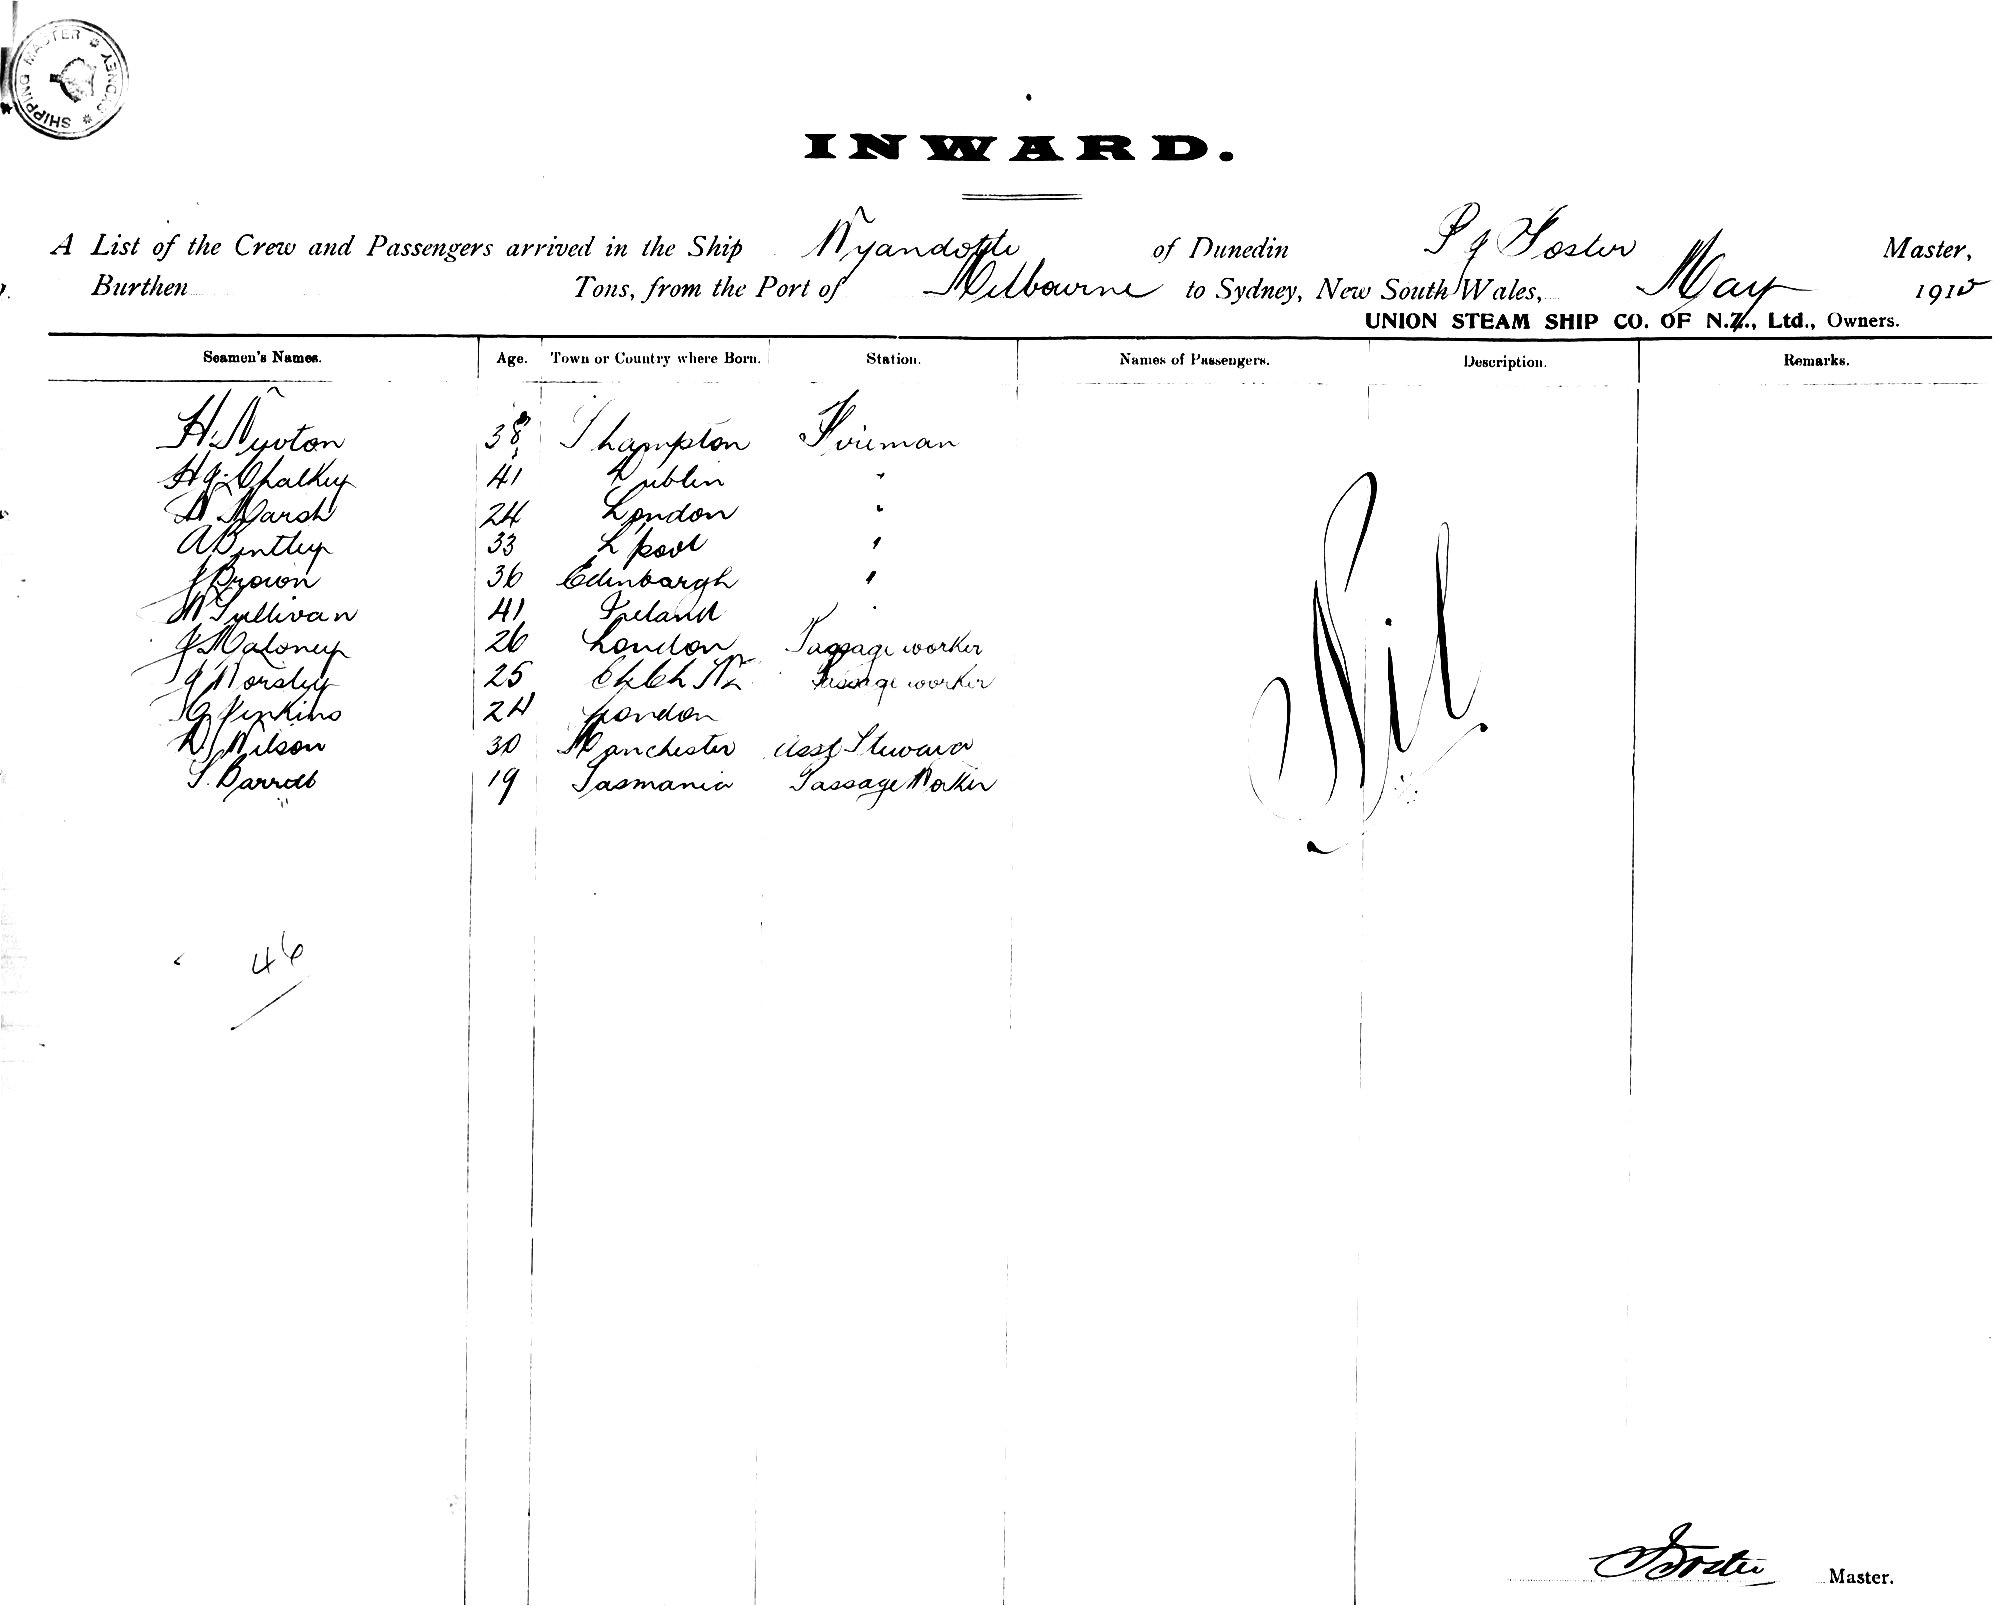 SHIPPING MASTER * SYDNEY *
INWARD.
A List of the Crew and Passengers arrived in the Ship Wyandotte of Dunedin P J Foster Master,
Burthen Tons, from the Port of Melbourne to Sydney, New South Wales, May 191
UNION STEAM SHIP CO. OF N.Z., Ltd., Owners.
Seamen's Names. Age. Town or Country where Born. Station. Names of Passengers. Description. Remarks.
H. Newton 38 S'hampton Fireman
H J Chalkey 41 Dublin "
Marsh 24 London "
A Bentley 33 L'pool "
J Brown 36 Edinbargh "
M Sullivan 41 Ireland "
J Maloney 26 London Passage worker
J Worsley 25 ChCh NZ Passage worker
G Jenkins 24 London
D Wilson 30 Manchester Asst Steward
S. Barrett 19 Tasmania Passage Worker
Nil
46
Foster Master.